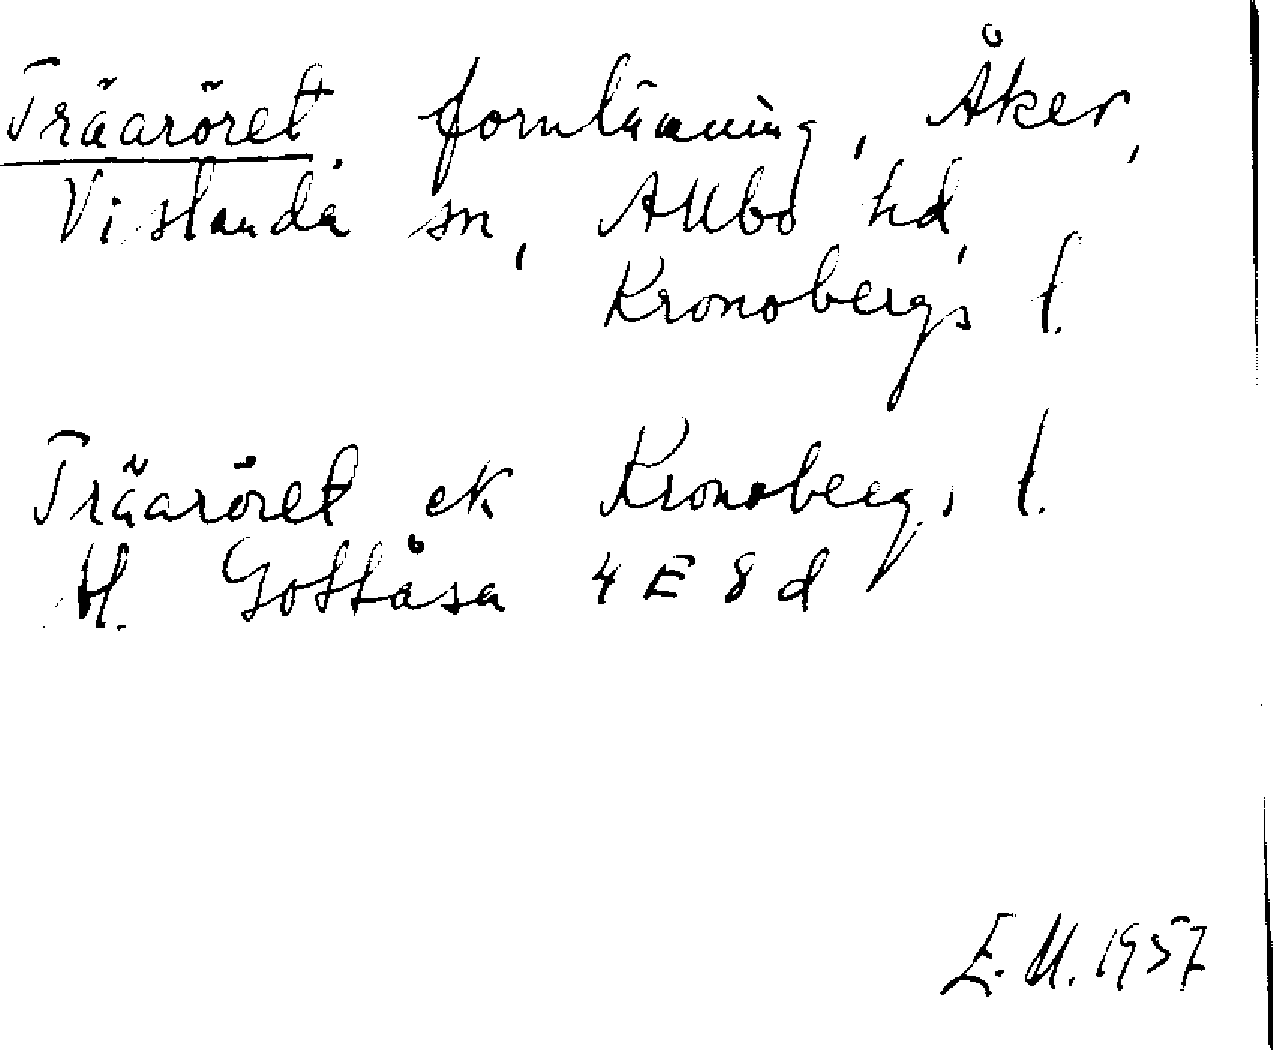 Träaröret fornlämning, Åker,
Vislanda sn, Allbo hd,
Kronobergs l.
Träaröret ek Kronobergs l.
Gottåsa 4 E 8 d
E.M. 1957